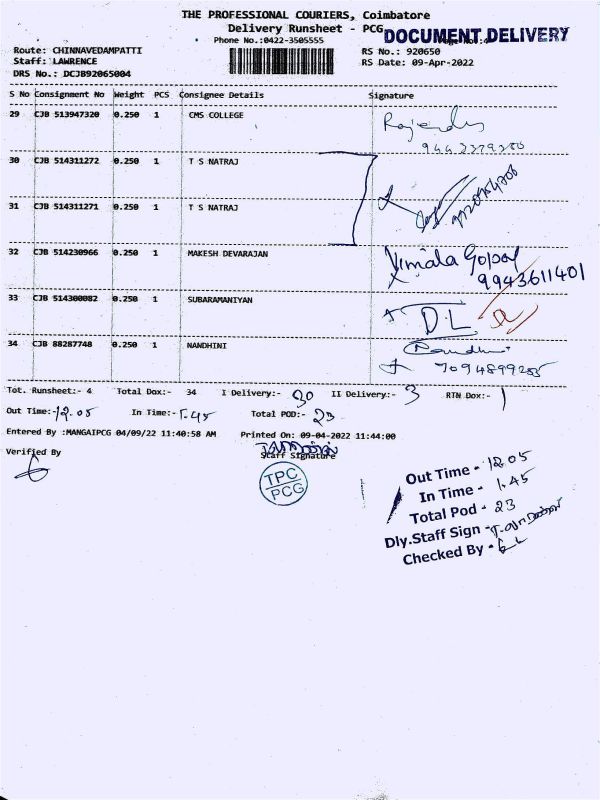 THE PROFESSIONAL COURIERS, Coimbatore
Delivery Runsheet - PCG
DOCUMENT DELIVERY
Phone No.:0422-3505555
Route: CHINNAVEDAMPATTI
RS No.: 920650
Staff: LAWRENCE
RS Date: 09-Apr-2022
DRS No.: DCJB92065004
S No Consignment No Weight PCS Consignee Details Signature
29 CJB 513947320 0.250 1 CMS COLLEGE
30 CJB 514311272 0.250 1 T S NATRAJ
31 CJB 514311271 0.250 1 T S NATRAJ
32 CJB 514230966 0.250 1 MAKESH DEVARAJAN Vimala Gopal
9943611401
33 CJB 514300082 0.250 1 SUBARAMANIYAN D.L
34 CJB 88287748 0.250 1 NANDHINI
Tot. Runsheet:- 4 Total Dox:- 34 I Delivery:- 30 II Delivery:- 3 RTN Dox:- 1
Out Time:- 12.05 In Time:- 1.45 Total POD:- 23
Entered By :MANGAIPCG 04/09/22 11:40:58 AM Printed On: 09-04-2022 11:44:00
Verified By
Staff Signature
TPC
PCG
Out Time - 12.05
In Time - 1.45
Total Pod - 23
Dly.Staff Sign -
Checked By -